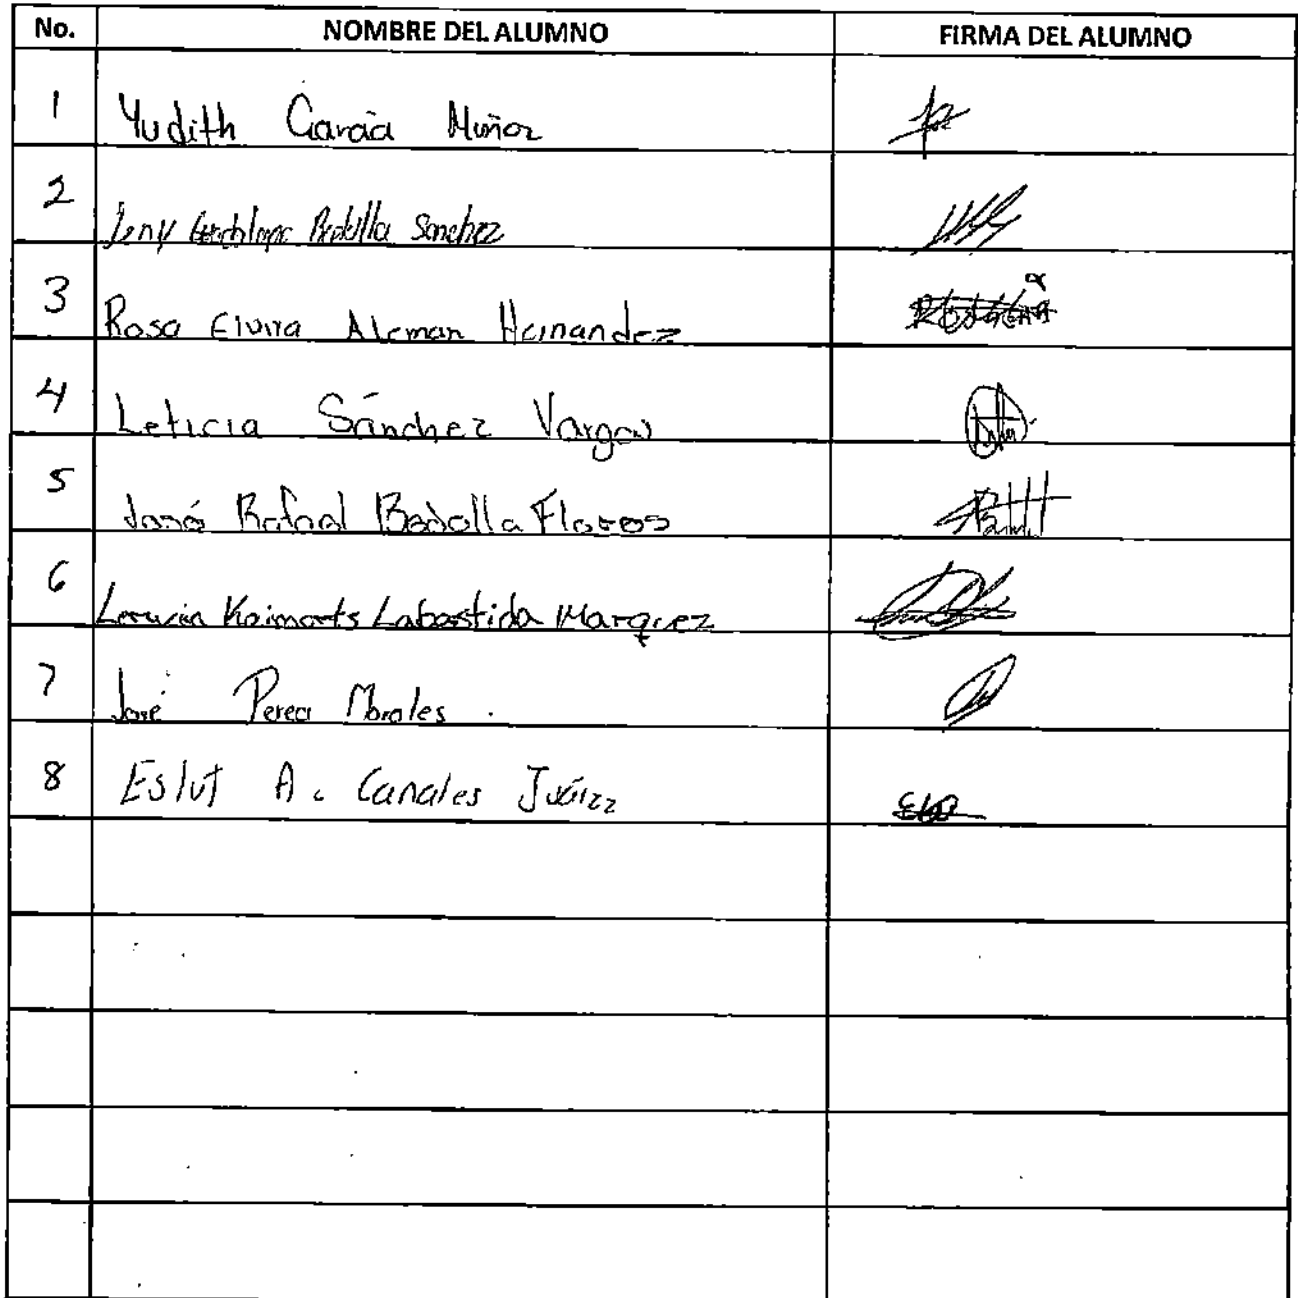 No. NOMBRE DEL ALUMNO FIRMA DEL ALUMNO
1 Yudith García Muñoz
2 Jeny Guadalupe Sanchez
3 Rosa Elvira Aleman Hernandez
4 Leticia Sánchez Vargas
5 José Rafael Bedolla Flores
6 Labastida Marquez
7 José Perea Morales
8 A. Canales Juárez